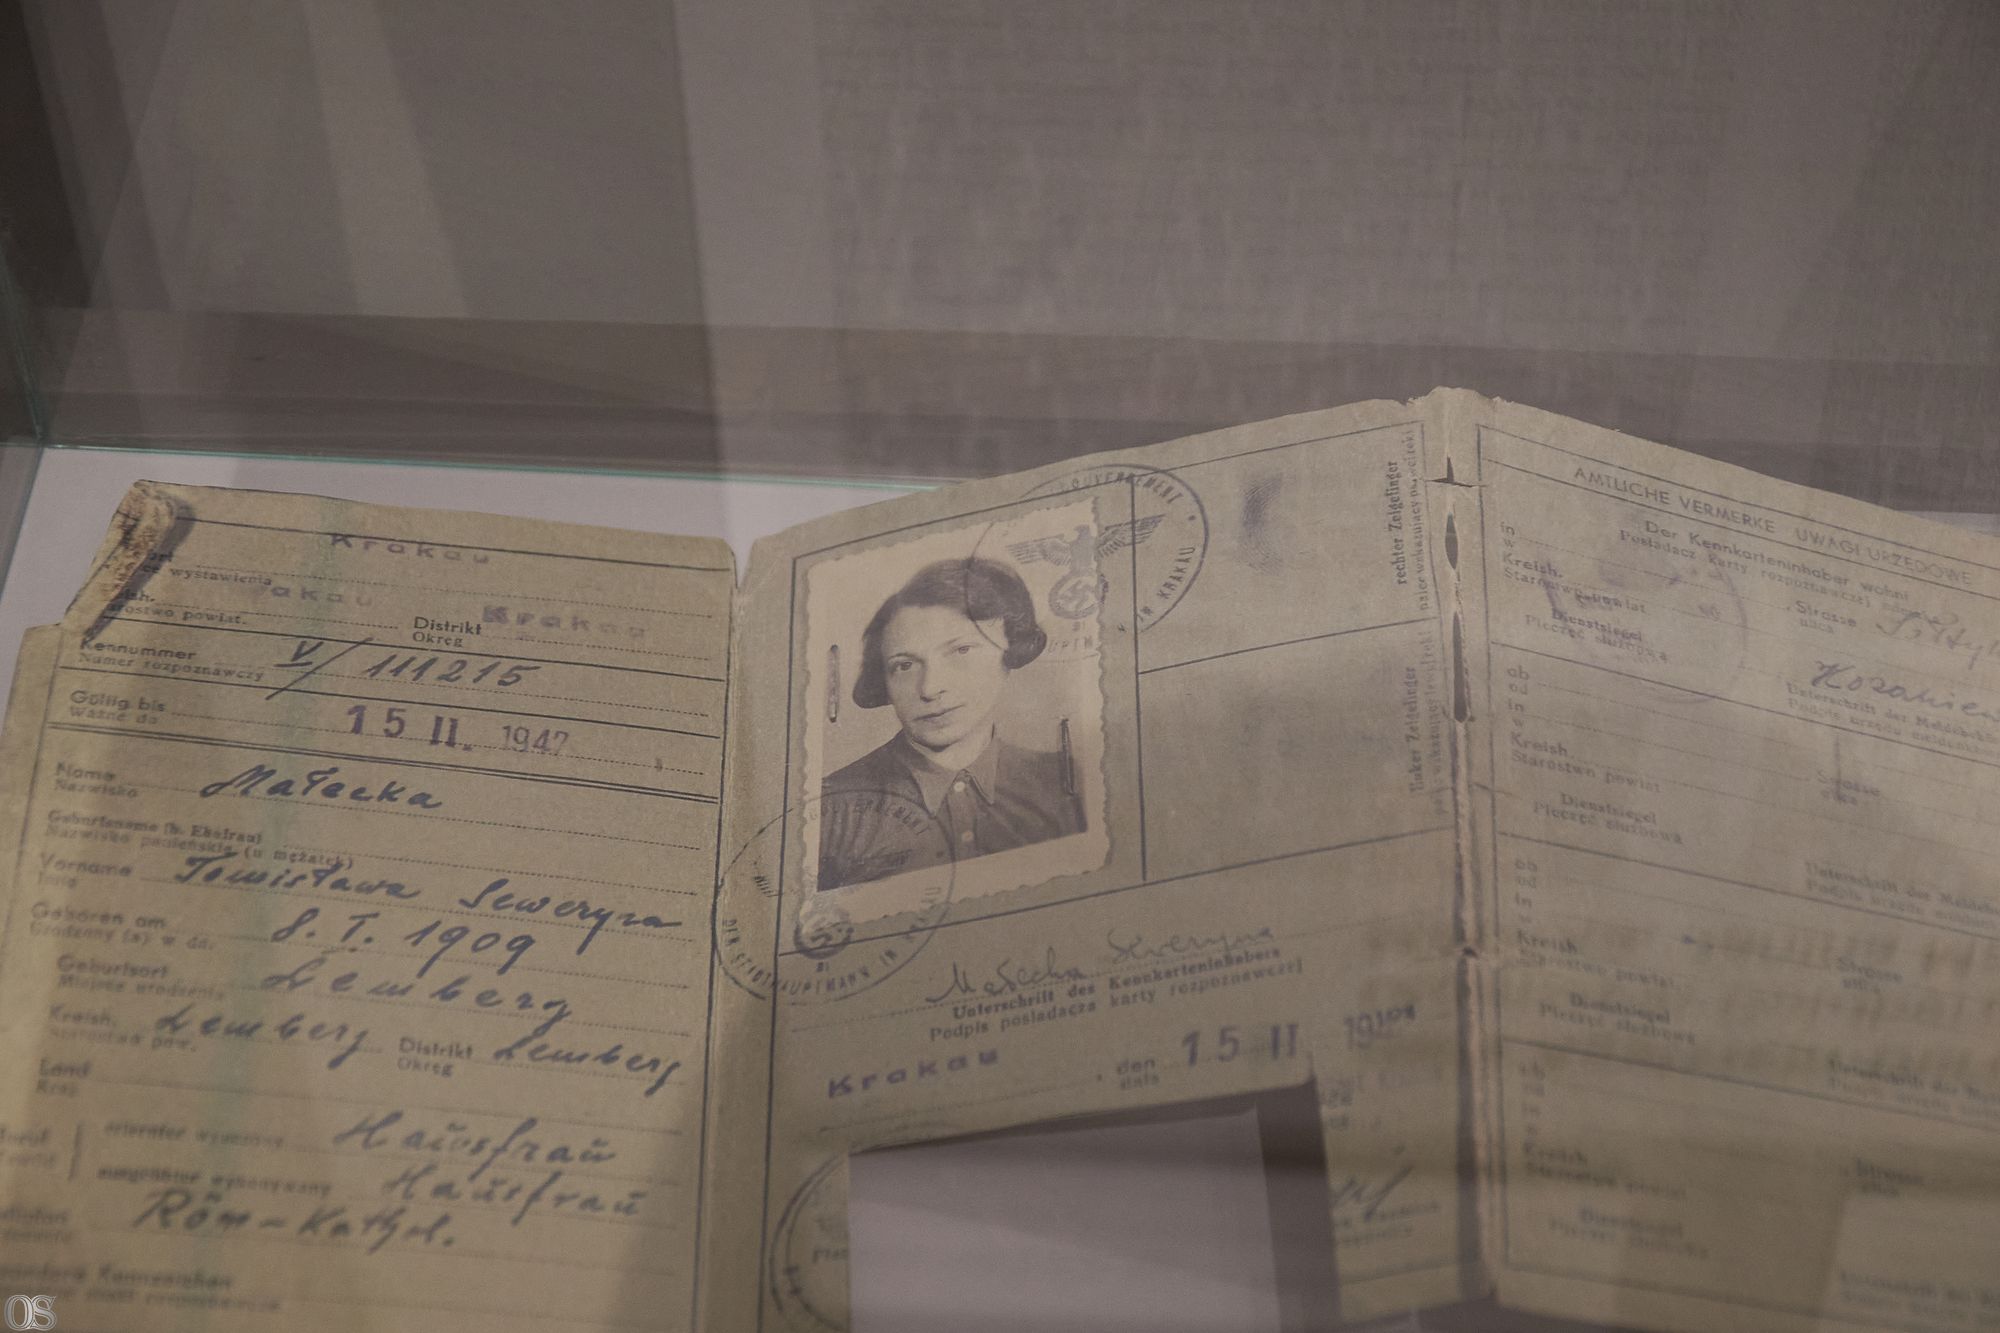 Krakau
wystawienia
Krakau
Distrikt
Okręg
Starostwo powiat.
Kennummer
Numer rozpoznawczy
V/111215
Gültig bis
Ważne do
15 II. 1947
Name
Nazwisko
Małecka
Geburtsname (b. Ehefrau)
Nazwisko panieńskie (u mężatek)
Vorname
Imię
Tomisława Seweryna
Geboren am
Urodzony (a) w dn.
8. I. 1909
Geburtsort
Miejsce urodzenia
Lemberg
Kreish.
Starostwo pow.
Lemberg
Distrikt
Okręg
Lemberg
Land
Kraj
Beruf
erlernter wyuczony
Hausfrau
ausgeübter wykonywany
Hausfrau
Religion
Röm-Kathol.
Besondere Kennzeichen
GOUVERNEMENT
IN KRAKAU
DER STADTHAUPTMANN IN KRAKAU
rechter Zeigefinger
palec wskazujący prawej ręki
linker Zeigefinger
palec wskazujący lewej ręki
Małecka Seweryna
Unterschrift des Kennkarteninhabers
Podpis posiadacza karty rozpoznawczej
Krakau, den
dnia
15 II
AMTLICHE VERMERKE UWAGI URZĘDOWE
Der Kennkarteninhaber wohnt
Posiadacz karty rozpoznawczej
in
w
Kreish.
Starostwo powiat
Strasse
ulica
Dienstsiegel
Pieczęć służbowa
Unterschrift der
Podpis urzędu
ab
od
in
w
Kreish.
Starostwo powiat
Strasse
ulica
Dienstsiegel
Pieczęć służbowa
Unterschrift des
Podpis urzędu
ab
od
in
w
Kreish.
Starostwo powiat.
Strasse
ulica
Dienstsiegel
Pieczęć służbowa
ab
od
in
w
Kreish.
Starostwo powiat
Strasse
ulica
Dienstsiegel
Pieczęć służbowa
OS